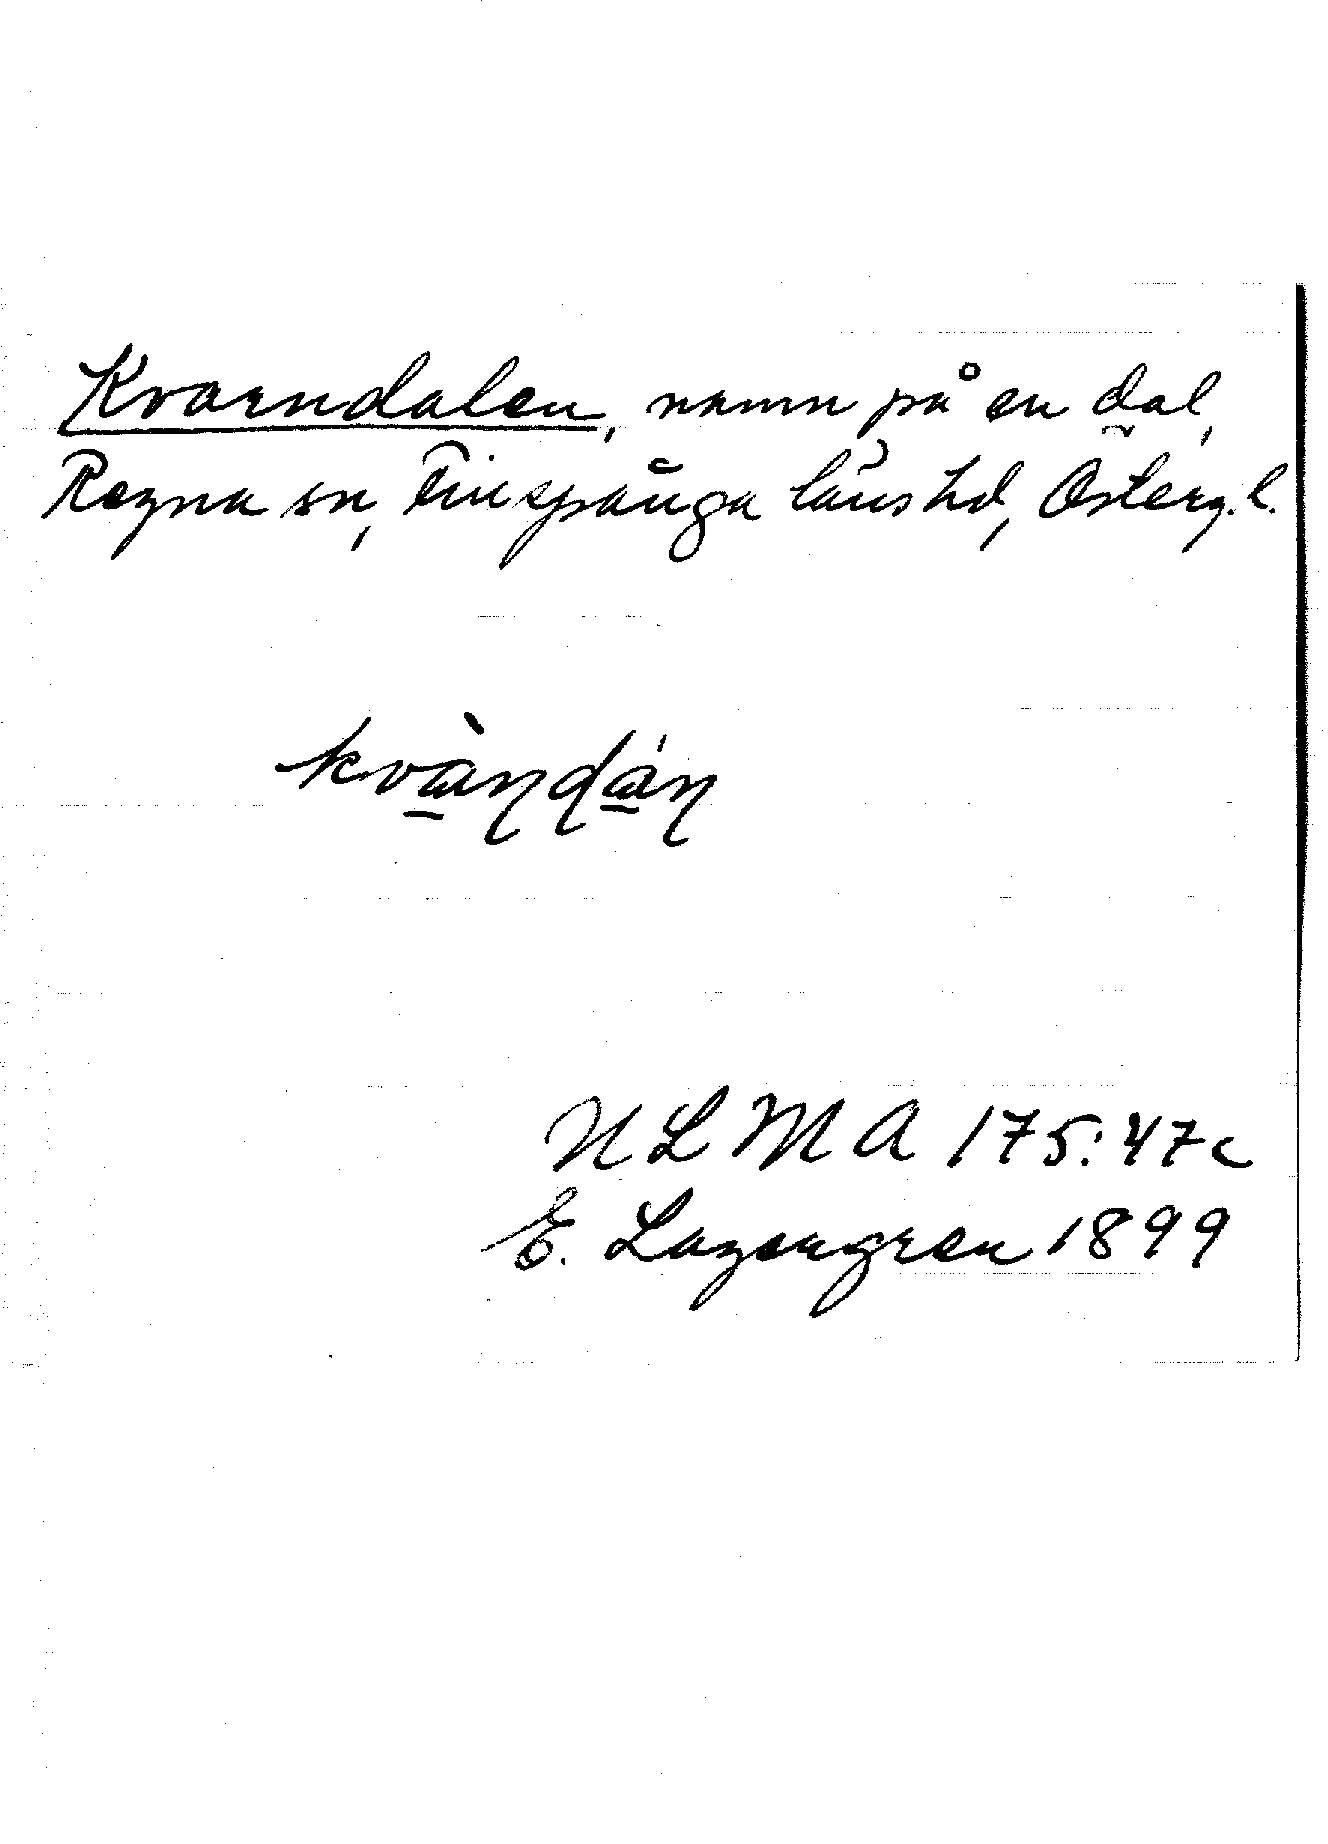 Kvarndalen, namn på en dal,
Regna sn, Finspånga läns hd, Österg. l.
kvàṇḍáṇ
ULMA 175:47c
E. Lagengren 1899